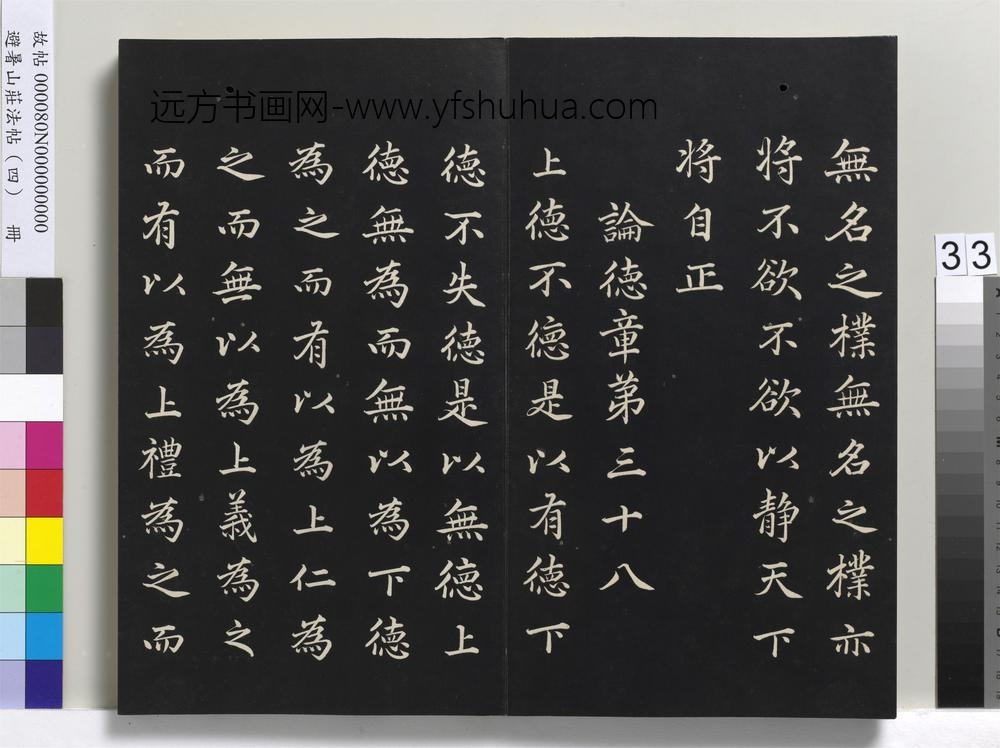 無名之樸無名之樸亦
將不欲不欲以静天下
將自正
論德章第三十八
上德不德是以有德下
德不失德是以無德上
德無為而無以為下德
為之而有以為上仁為
之而無以為上義為之
而有以為上禮為之而
远方书画网-www.yfshuhua.com
故帖 000080N000000000
避暑山莊法帖（四） 冊
33